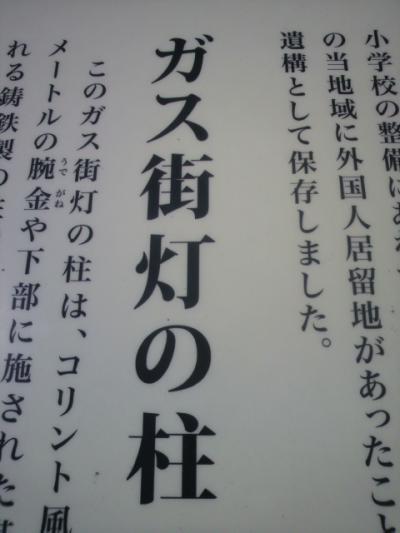 小学校の整備にあ
の当地域に外国人居留地があったこと
遺構として保存しました。
ガス街灯の柱
このガス街灯の柱は、コリント風
メートルの腕金や下部に施された
れる鋳鉄製の
うで がね